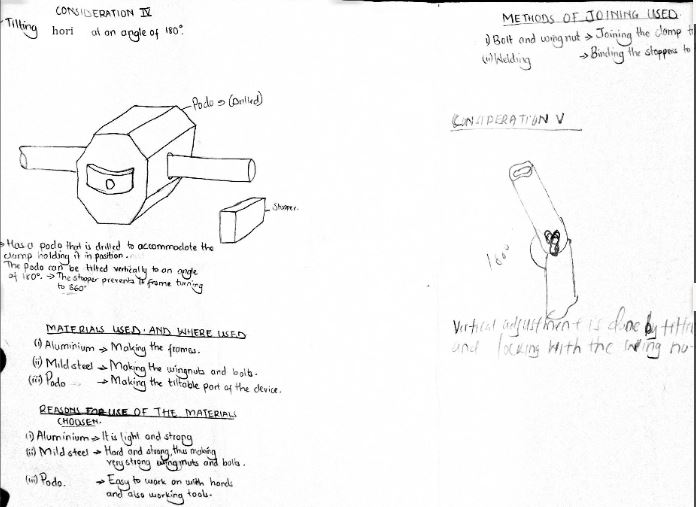 CONSIDERATION IV
- Tilting hori al on angle of 180°.
Podo → (Drilled)
Stooper.
→ Has a podo that is drilled to accommodate the
clamp holding it in position.
The Podo can be tilted vertically to an angle
of 180°. → The stooper prevents frame turning
to 360°
MATERIALS USED. AND WHERE USED
(i) Aluminium → Making the frames.
(ii) Mild steel → Making the wingnuts and bolts.
(iii) Podo → Making the tiltable part of the device.
REASONS FOR USE OF THE MATERIALS
CHOOSEN.
(i) Aluminium → It is light and strong
(ii) Mild steel → Hard and strong, thus making
very strong wingnuts and bolts.
(iii) Podo. → Easy to work on with hands
and also working tools.
METHODS OF JOINING USED
i) Bolt and wingnut → Joining the clamp
(ii) Welding → Binding the stoppers to
CONSIDERATION V
180°
Vertical adjustment is done by
and locking with the wing